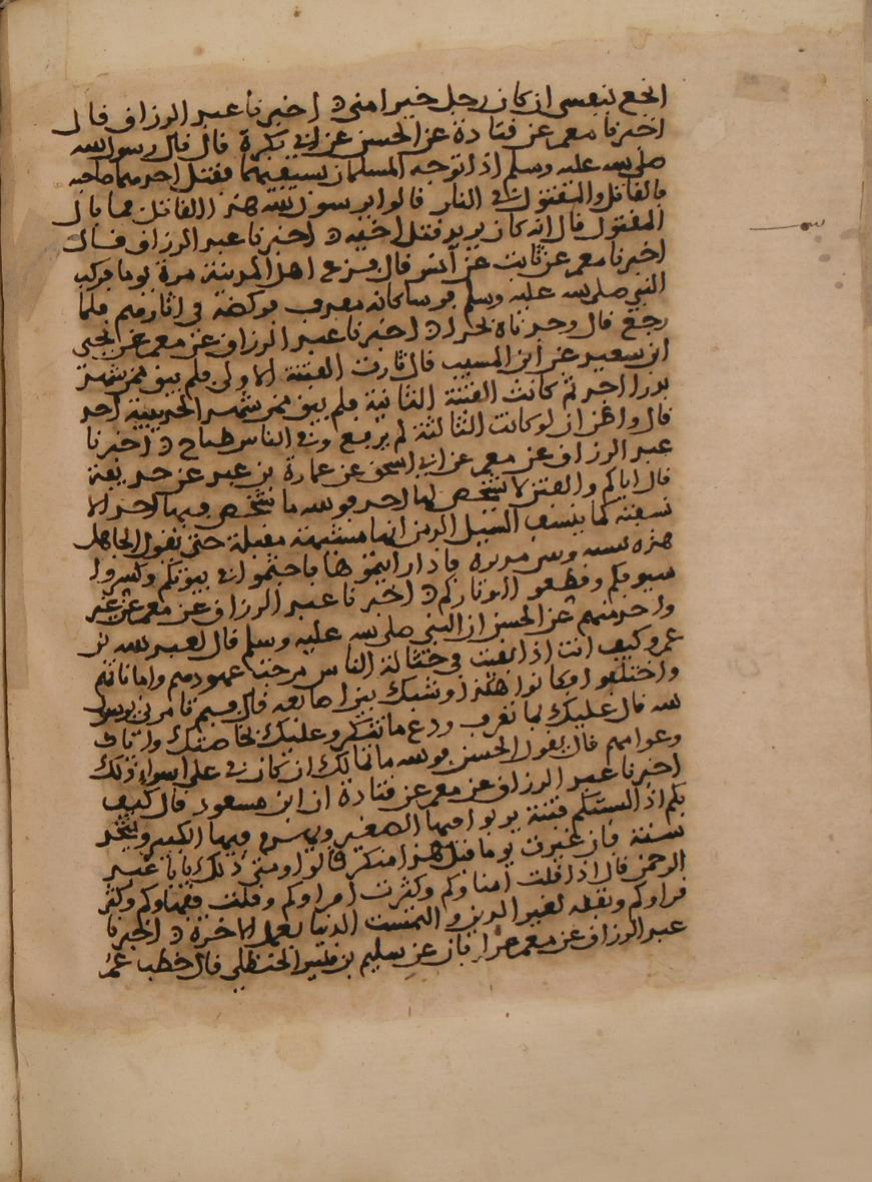 انجع لنفسي ان كان رجل خيرا مني ه اخبرنا عبد الرزاق قال
اخبرنا معمر عن قتادة عن الحسن عن ابي بكرة قال قال رسول الله
صلى الله عليه وسلم اذا توجه المسلمان بسيفيهما فقتل احدهما صاحبه
فالقاتل والمقتول في النار قالوا يرسول الله هذا القاتل فما بال
المقتول قال انه كان يريد قتل اخيه ه اخبرنا عبد الرزاق قال
اخبرنا معمر عن ثابت عن انس قال فزع اهل المدينة مرة يوما فركب
النبي صلى الله عليه وسلم فرسا كانه مقرف فركضه في اثارهم فلما
رجع قال وجدناه بحرا ه اخبرنا عبد الرزاق عن معمر عن يحيى
ابن سعيد عن ابن المسيب قال ثارت الفتنة الاولى فلم يبق ممن شهد
بدرا احد ثم كانت الفتنة الثانية فلم يبق ممن شهد الحديبية احد
قال واظن ان لو كانت الثالثة لم ترفع وفي الناس طباخ ه اخبرنا
عبد الرزاق عن معمر عن ابي اسحق عن عمارة بن عبد عن حذيفة
قال اياكم والفتن لا يشخص لها احد فوالله ما شخص فيها احد الا
نسفته كما ينسف السيل الدمن انها مشبهة مقبلة حتى يقول الجاهل
هذه مدبرة فاذا رايتموها فاجثموا في بيوتكم وكسروا
سيوفكم وقطعوا اوتاركم ه اخبرنا عبد الرزاق عن معمر عن غير
واحد منهم عن الحسن ان النبي صلى الله عليه وسلم قال لعبد الله بن
عمرو كيف انت اذا بقيت في حثالة الناس مرجت عهودهم واماناتهم
واختلفوا فكانوا هكذا وشبك بين اصابعه قال فبم تامرني يرسول
الله قال عليك بما تعرف ودع ما تنكر وعليك بخاصتك واياك
وعوامهم قال يقول الحسن فوالله ما تمالك ان كان في على اسواء ذلك
اخبرنا عبد الرزاق عن معمر عن قتادة ان ابن مسعود قال كيف
بكم اذا لبستكم فتنة يربوا فيها الصغير ويهرم فيها الكبير وتتخذ
سنة فان غيرت يوما قيل هذا منكر قالوا ومتى ذلك يابا عبد
الرحمن قال اذا قلت امناوكم وكثرت امراوكم وقلت فقهاوكم وكثر
قراوكم وتفقه لغير الدين والتمست الدنيا بعمل الاخرة ه اخبرنا
عبد الرزاق عن معمر عن ابان عن سليم بن قيس الحنظلي قال خطب عمر